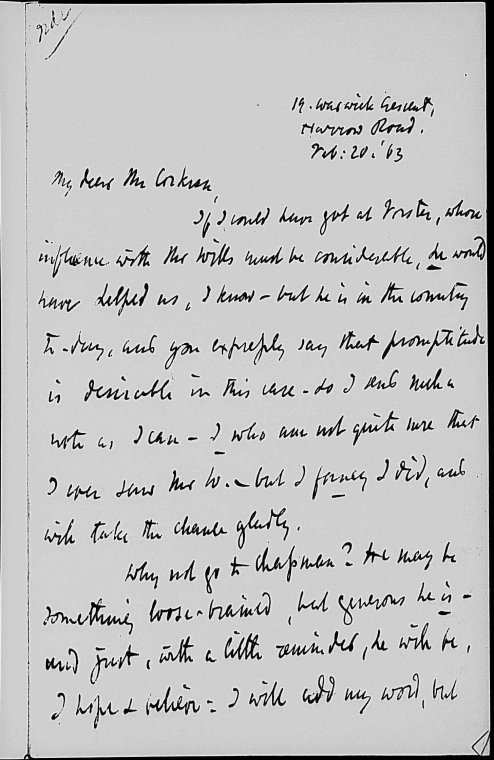 19. Warwick Crescent,
Harrow Road.
Feb: 20. '63
My dear Mr Corkran,
If I could have got at Forster, whose
influence with Mr Wills must be considerable, he would
have helped us, I know - but he is in the country
to-day, and you expressly say that promptitude
is desirable in this case - so I send such a
note as I can - I who am not quite sure that
I ever saw Mr W. - but I fancy I did, and
will take the chance gladly.
Why not go to Chapman? He may be
something loose-brained, but generous he is -
and just, with a little reminder, he will be,
I hope & believe = I will add my word, but